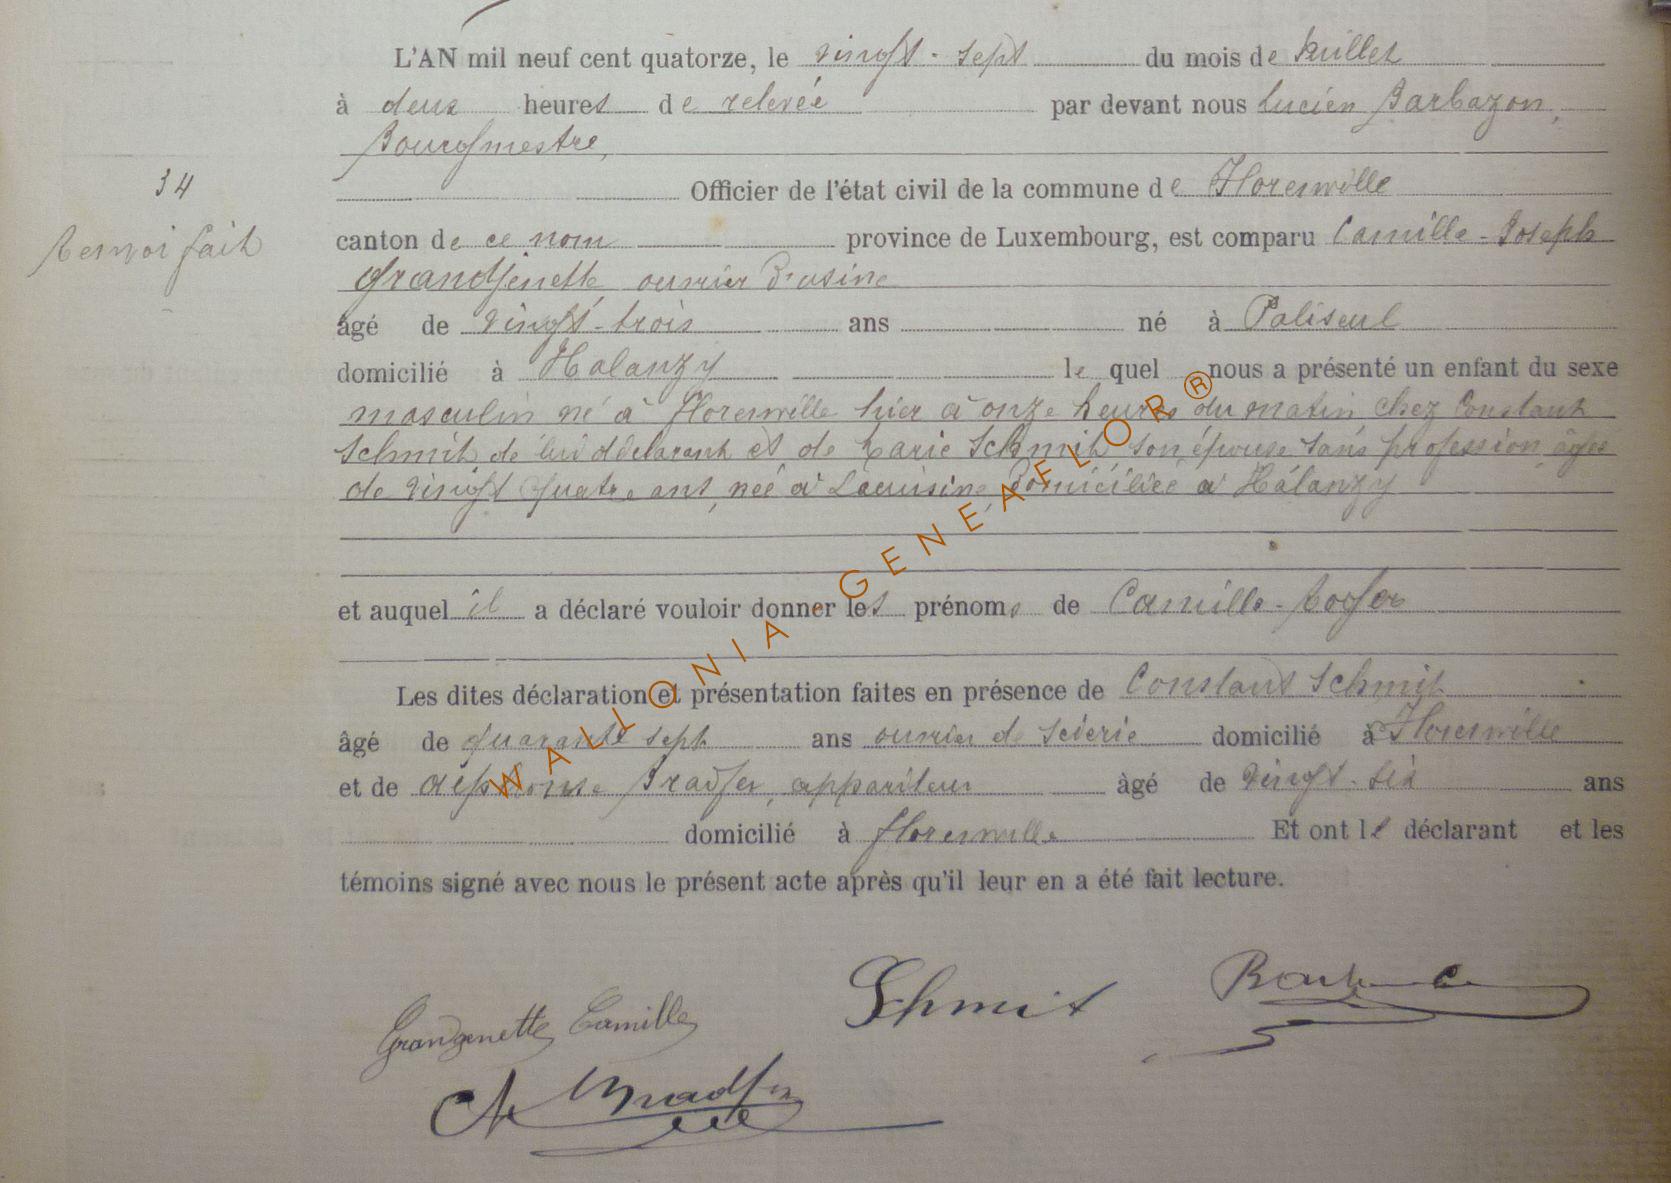 L'AN mil neuf cent quatorze, le vingt-sept du mois de Juillet
à deux heures de relevée par devant nous Lucien Barbazon,
Bourgmestre,
34
Officier de l'état civil de la commune de Florenville
Renvoi fait
canton de ce nom province de Luxembourg, est comparu Camille-Joseph
Grandjenette ouvrier d'usine
âgé de vingt-trois ans né à Paliseul
domicilié à Halanzy lequel nous a présenté un enfant du sexe
masculin né à Florenville hier à onze heures du matin chez Constant
Schmit de lui déclarant et de Marie Schmit son épouse sans profession âgée
de vingt quatre ans, née à Lacuisine, domiciliée à Halanzy
et auquel il a déclaré vouloir donner les prénoms de Camille-Roger
Les dites déclaration et présentation faites en présence de Constant Schmit
âgé de quarante sept ans ouvrier de scierie domicilié à Florenville
et de Alphonse Bradfer, appariteur âgé de vingt-six ans
domicilié à Florenville Et ont le déclarant et les
témoins signé avec nous le présent acte après qu'il leur en a été fait lecture.
Grandgenette Camille Schmit
A Bradfer
WALLONIA - GENEAFLOR ®